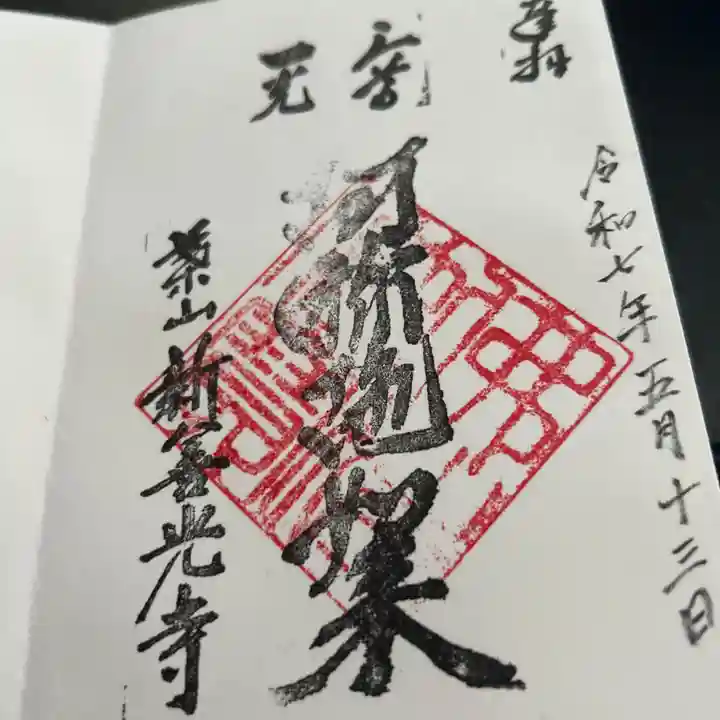 奉拝
令和七年五月十三日
一光
三尊
阿弥陀如来
葉山新善光寺